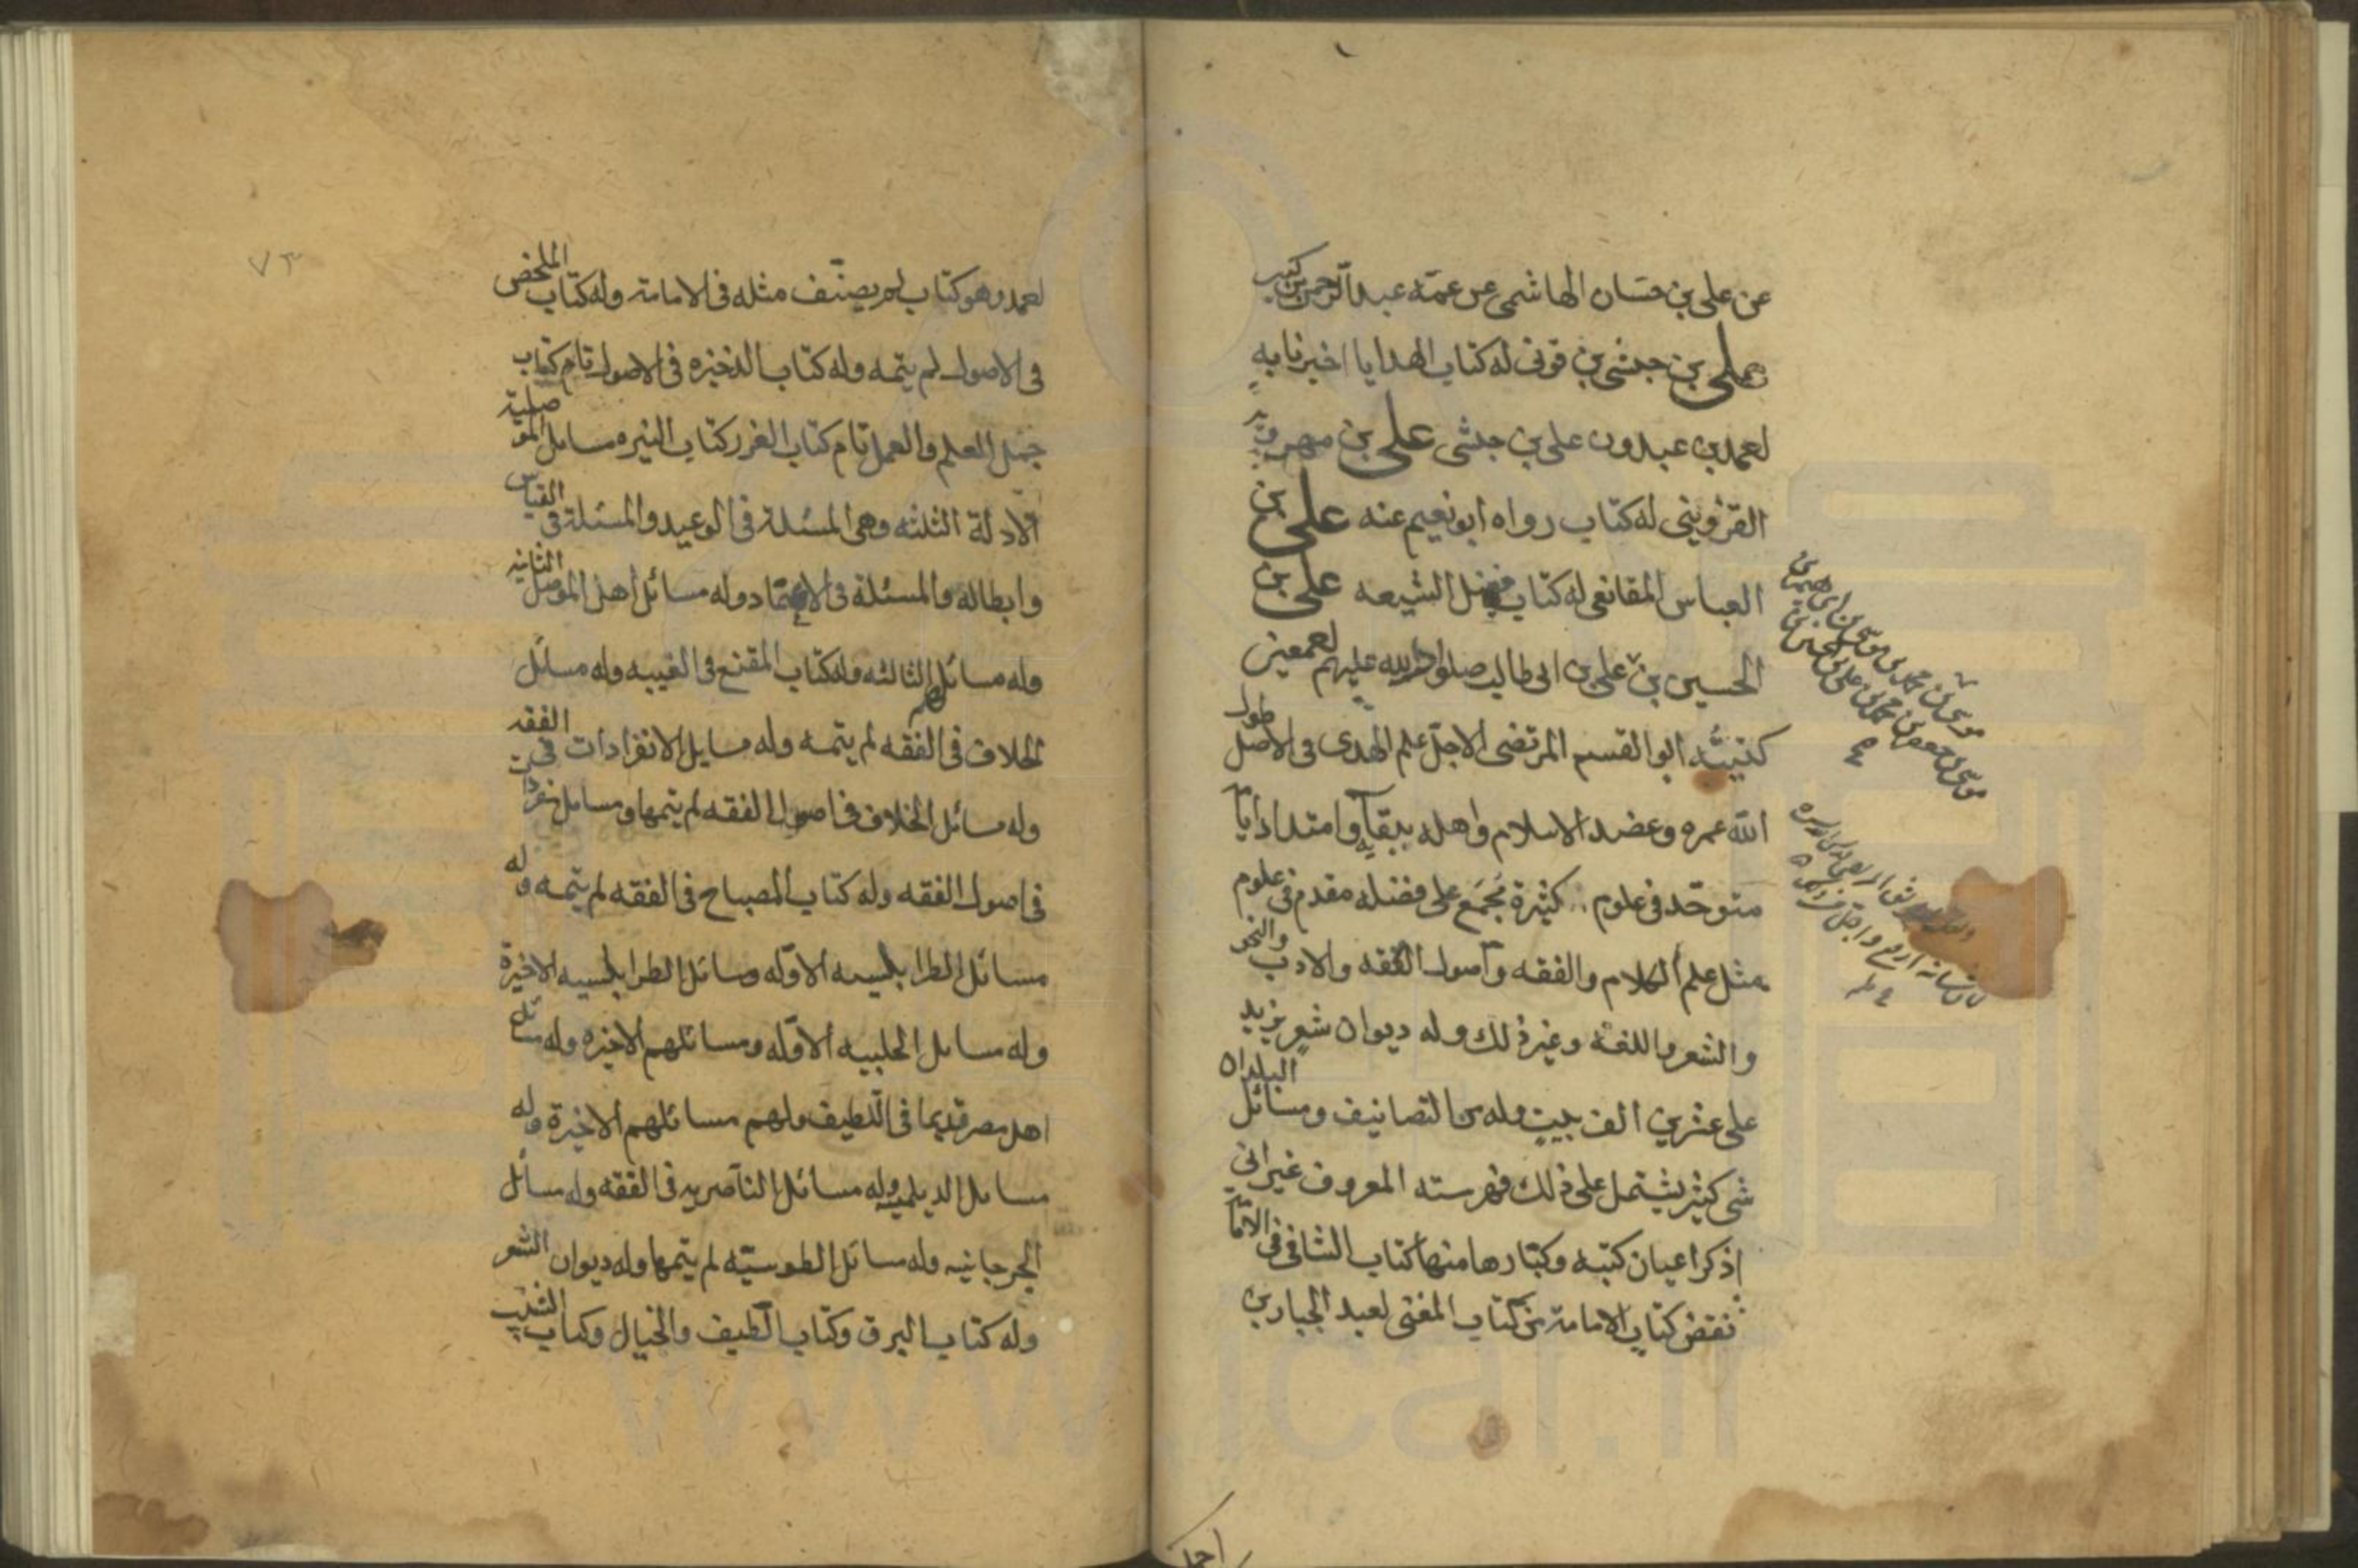 عن علي بن حسان الهاشمي عن عمه عبد الرحمن بن كثير
علي بن حبشي بن قوني له كتاب الهدايا اخبرنا به
احمد بن عبدون علي بن حبشي علي بن مهرويه
القزويني له كتاب رواه ابو نعيم عنه علي بن
العباس المقانعي له كتاب فضل الشيعه علي بن
الحسين بن علي بن ابي طالب صلوات الله عليهم اجمعين
كنيته ابو القسم المرتضى الاجل علم الهدى في الاصل طول
الله عمره وعضد الاسلام واهله ببقآيه وامتداد ايامه
متوحد في علوم كثيرة مجمع على فضله مقدم في علوم
مثل علم الكلام والفقه واصول الفقه والادب والنحو
والشعر واللغة وغير ذلك وله ديوان شعر يزيد
على عشرين الف بيت وله من التصانيف ومسائل البلدان
شي كثير يشتمل على ذلك فهرسته المعروف غير اني
اذكر اعيان كتبه وكبارها منها كتاب الشافي في الامامة
نقض كتاب الامامة من كتاب المغني لعبد الجبار بن
موسى بن محمد بن موسى بن ابراهيم بن
موسى بن جعفر بن محمد بن علي بن الحسين بن
احمد
٧٣
احمد وهو كتاب لم يصنف مثله في الامامة وله كتاب الملخص
في الاصول لم يتمه وله كتاب الذخيره في الاصول تام كتاب
جمل العلم والعمل تام كتاب الغرر كتاب التنزيه مسائل الموصلية
الادلة الثلثه وهي المسئلة في الوعيد والمسئلة في القياس
وابطاله والمسئلة في الاعتماد وله مسائل اهل الموصل الثانيه
وله مسائلهم الثالثه وله كتاب المقنع في الغيبه وله مسائل
الخلاف في الفقه لم يتمه وله مسايل الانفرادات في الفقه
وله مسائل الخلاف في اصول الفقه لم يتمها ومسايل منفردات
في اصول الفقه وله كتاب المصباح في الفقه لم يتمه وله
مسائل الطرابلسيه الاوله ومسائل الطرابلسيه الاخيرة
وله مسايل الحلبيه الاوله ومسائلهم الاخيره وله مسائل
اهل مصر قديما في اللطيف ولهم مسائلهم الاخيرة وله
مسايل الديلميه وله مسائل الناصريه في الفقه وله مسائل
الجرجانيه وله مسائل الطوسيه لم يتمها وله ديوان الشعر
وله كتاب البرق وكتاب الطيف والخيال وكتاب الشيب